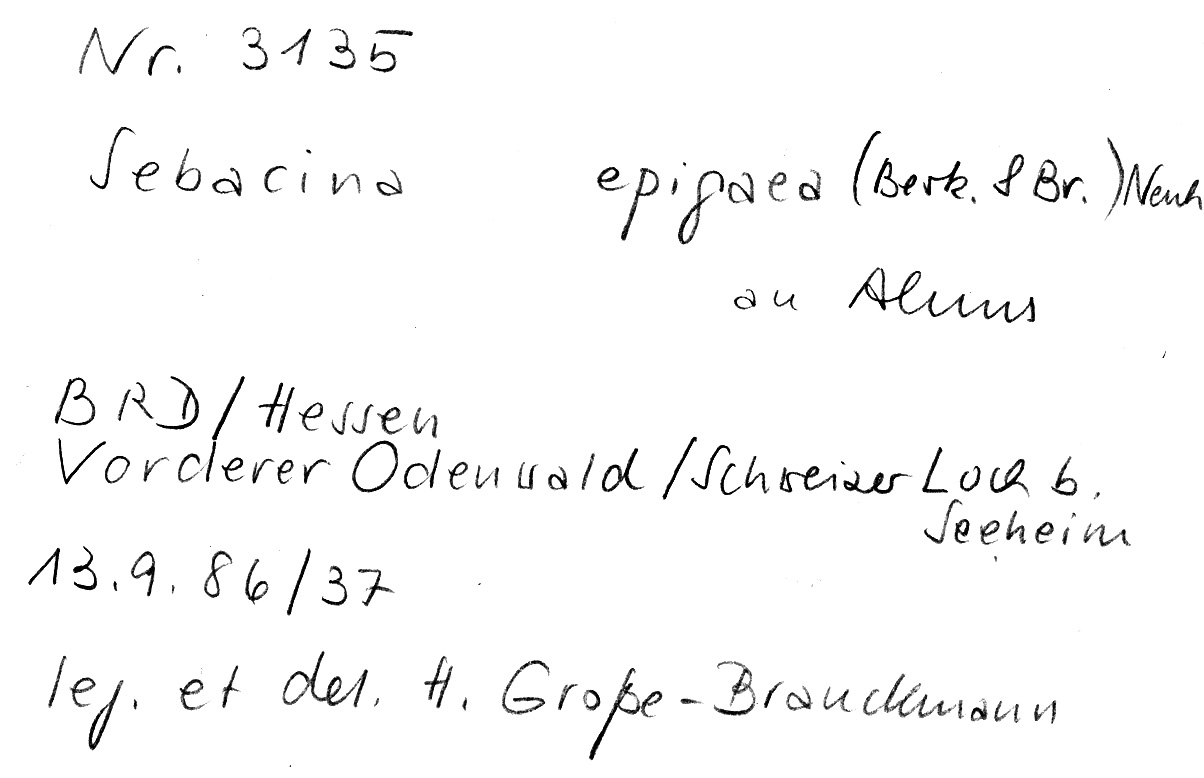 Nr. 3135
Sebacina epigaea (Berk. & Br.) Neuh
an Alnus
BRD/Hessen
Vorderer Odenwald/Schweizer Loch b.
Seeheim
13.9.86/37
leg. et det. H. Große-Brauckmann